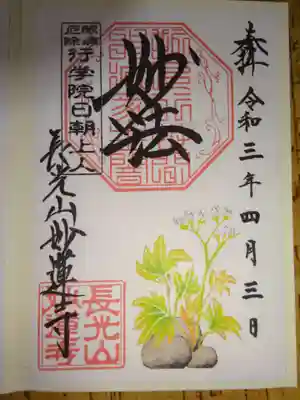 奉拝 令和三年四月三日
妙法
眼病
厄除
行学院日朝上人
長光山妙蓮寺
長光山
妙蓮寺